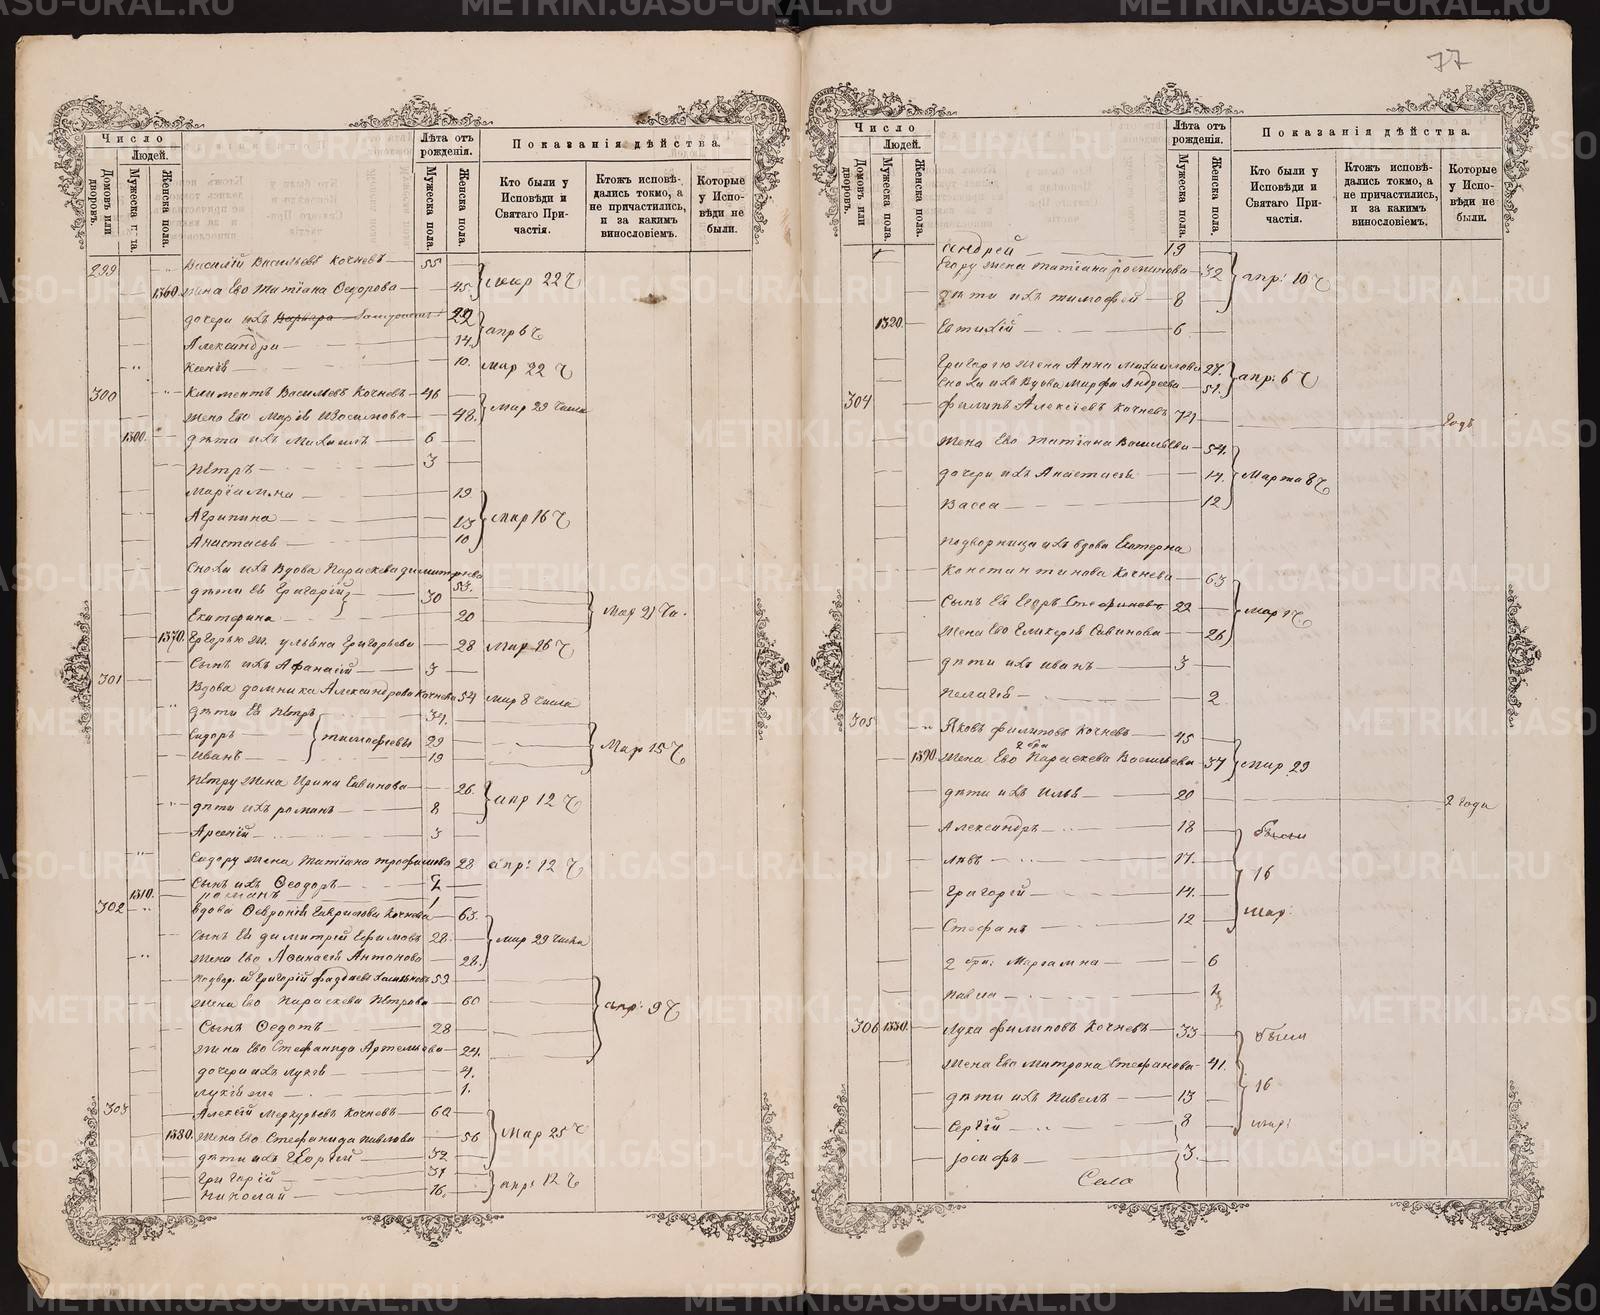 77
Число
Людей.
Домовъ или дворовъ.
Мужеска пола.
Женска пола.
Лѣта отъ рожденія.
Мужеска пола.
Женска пола.
Показанія дѣйства.
Кто были у Исповѣди и Святаго Причастія.
Ктожъ исповѣдались токмо, а не причастились, и за какимъ винословіемъ.
Которые у Исповѣди не были.
299 Василій Васильевъ Кочневъ 55
1360. жена Его Татіана Ѳедорова 45. мар 22 Ч
дочери ихъ Варвара 22
Александра 14. апр 6 Ч
Ксенія 10. мар 22 Ч
300 Климентъ Васильевъ Кочневъ 46
жена Его Марія Изосимова 48. мар 29 Числа
1300. дѣти ихъ Михаилъ 6
Петръ 3
Маріамна 19
Агрипина 13 мар 16 Ч
Анастасья 10
Сноха ихъ Вдова Параскева Димитріева 53.
дѣти Ея Григорій 30
Екатерина 20 Мар 21 Чи.
1370. Григорью ж. ульяна Григорьева 28 Мар 16 Ч
Сынъ ихъ Афанасій 3
301 Вдова домника Александрова Кочнева 54 мар 8 Числа
дѣти Ея Петръ 34.
Сидоръ тимофеевы 29
Иванъ 19 Мар 15 Ч
Петру жена Ирина Савинова 26.
дѣти ихъ романъ 8 апр 12 Ч
Арсеній 3
Сидору жена Татіана трофимова 28 апр: 12 Ч
Сынъ ихъ Ѳеодоръ 2
1310. романъ 1
302 вдова Ѳевронія Гаврилова Кочнева 63.
Сынъ Ея димитрій Ефимовъ 28. мар 29 Числа
жена Его Аѳанасія Антонова 28.
Григорій 59
жена Его Параскева Петрова 60 апр: 9 Ч
Сынъ Ѳедотъ 28
жена Его Стефанида Артемьева 24.
дочери ихъ лукія 4.
1.
303 Алексій Меркурьевъ Кочневъ 60
1380. жена Его Стефанида павлова 56 Мар 25 Ч
дѣти ихъ Георгій 32
Григорій 31
Николай 16. апр: 12 Ч
Число
Людей.
Домовъ или дворовъ.
Мужеска пола.
Женска пола.
Лѣта отъ рожденія.
Мужеска пола.
Женска пола.
Показанія дѣйства.
Кто были у Исповѣди и Святаго Причастія.
Ктожъ исповѣдались токмо, а не причастились, и за какимъ винословіемъ.
Которые у Исповѣди не были.
андрей 19
Егору жена татіана 32 апр: 10 Ч
дѣти ихъ тимофей 8
1320. Евтихій 6
Григорію жена Анна Михаилова 27.
Сноха ихъ Вдова Марфа Андреева 51. апр: 6 Ч
304 филипъ Алексіевъ Кочневъ 74 годъ
жена Его татіана Васильева 54.
дочери ихъ Анастасья 14. Марта 8 Ч
Васса 12
подворница ихъ вдова Екатерна
Константинова Кочнева 63
Сынъ Ея Егоръ Стефановъ 22 Мар
жена Его Гликерія Савинова 26
дѣти ихъ иванъ 3
Пелагія 2
305 Яковъ филиповъ Кочневъ 45
2 бра
1390. жена Его Параскева Васильева 37 Мар 29
дѣти ихъ Илья 20 2 года
Александръ 18 были
левъ 17.
Григорій 14. 16
Стефанъ 12 мар:
2 бра: Маріамна 6
павла
306 1330. Лука филиповъ Кочневъ 33 были
жена Его митрона Стефанова 41.
дѣти ихъ Павелъ 13 16
Сергій 8 мар:
Іосифъ 3.
Село
METRIKI.GASO-URAL.RU